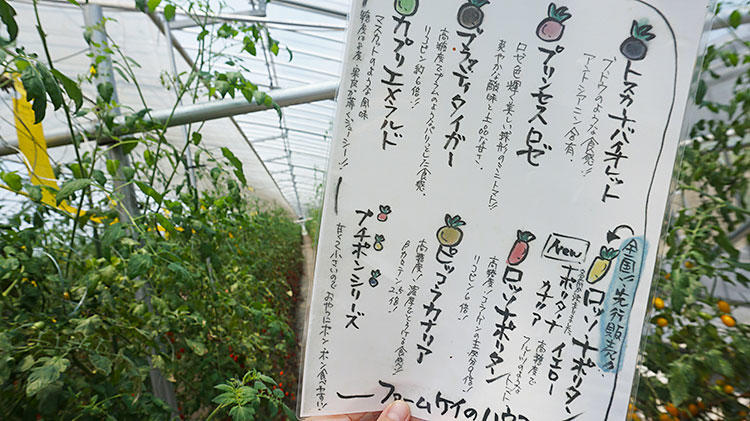 トスカナバイオレット
ブドウのような食感!!
「アントシアニン」含有。
プリンセスロゼ
ロゼ色輝く美しい卵形のミニトマト!!
爽やかな酸味と上品な甘さ。
ブラッディタイガー
高糖度でプラムのようなパリッとした食感。
リコピン約6倍!
カプリエメラルド
マスカットのような食味
糖度ほど良く果皮が薄くジューシー!!
全国!!先行販売♪
ロッソナポリタン
イエロー
New
ナポリタン
カナリア
高糖度で
フルーツのような
トマト
ロッソナポリタン
高糖度!コラーゲンの主成分9倍!
リコピン6倍!
ピッコラカナリア
高糖度!濃厚でとろける食感♪
βカロテン52倍!
プチポンシリーズ
甘くて小さいのでおやつにポンポン食べやすい!
ファームケイのハウ